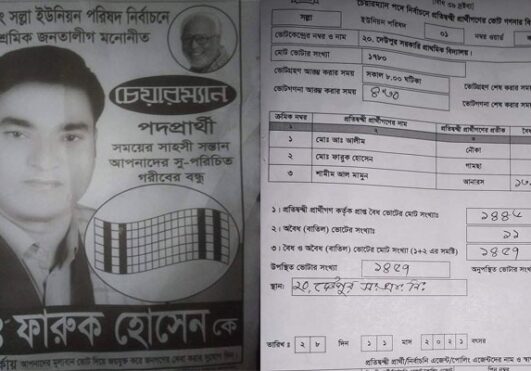 নং সল্লা ইউনিয়ন পরিষদ নির্বাচনে
শ্রমিক জনতালীগ মনোনীত
চেয়ারম্যান
পদপ্রার্থী
সময়ের সাহসী সন্তান
আপনাদের সু-পরিচিত
গরীবের বন্ধু
ফারুক হোসেন কে
আপনাদের মূল্যবান ভোট দিয়ে জয়যুক্ত করে জনগণের সেবা করার সুযোগ দিন।
চেয়ারম্যান পদে নির্বাচনে প্রতিদ্বন্দ্বী প্রার্থীগণের ভোট গণনার
সল্লা ইউনিয়ন পরিষদ ০১ নম্বর ওয়ার্ড
ভোটকেন্দ্রের নম্বর ও নাম ২০. দেউপুর সরকারি প্রাথমিক বিদ্যালয়।
মোট ভোটার সংখ্যা ১৭৮০
ভোটগ্রহণ আরম্ভ করার সময় সকাল ৮.০০ ঘটিকা ভোটগ্রহণ শেষ করার সময়
ভোটগণনা আরম্ভ করার সময় ভোটগণনা শেষ করার সময়
ক্রমিক নম্বর প্রতিদ্বন্দ্বী প্রার্থীগণের নাম প্রতিদ্বন্দ্বী প্রার্থীগণের প্রতীক
১ ২ ৩
১ মোঃ আঃ আলীম নৌকা
২ মোঃ ফারুক হোসেন গামছা
৩ শামীম আল মামুন আনারস
১। প্রতিদ্বন্দ্বী প্রার্থীগণ কর্তৃক প্রাপ্ত বৈধ ভোটের মোট সংখ্যাঃ ১৪৪৮
২। অবৈধ (বাতিল) ভোটের মোট সংখ্যাঃ ১১
৩। বৈধ ও অবৈধ (বাতিল) ভোটের মোট সংখ্যা (১+২ এর সমষ্টি) ১৪৫৯
উপস্থিত ভোটার সংখ্যা ১৪৫৯ অনুপস্থিত ভোটার সংখ্যা
স্থান: ২০, দেউপুর
তারিখ ঃ ২ ৮ দিন ১ ১ মাস ২ ০ ২ ১ বৎসর
প্রতিদ্বন্দ্বী প্রার্থী/নির্বাচনি এজেন্ট/পোলিং এজেন্টদের নাম ও